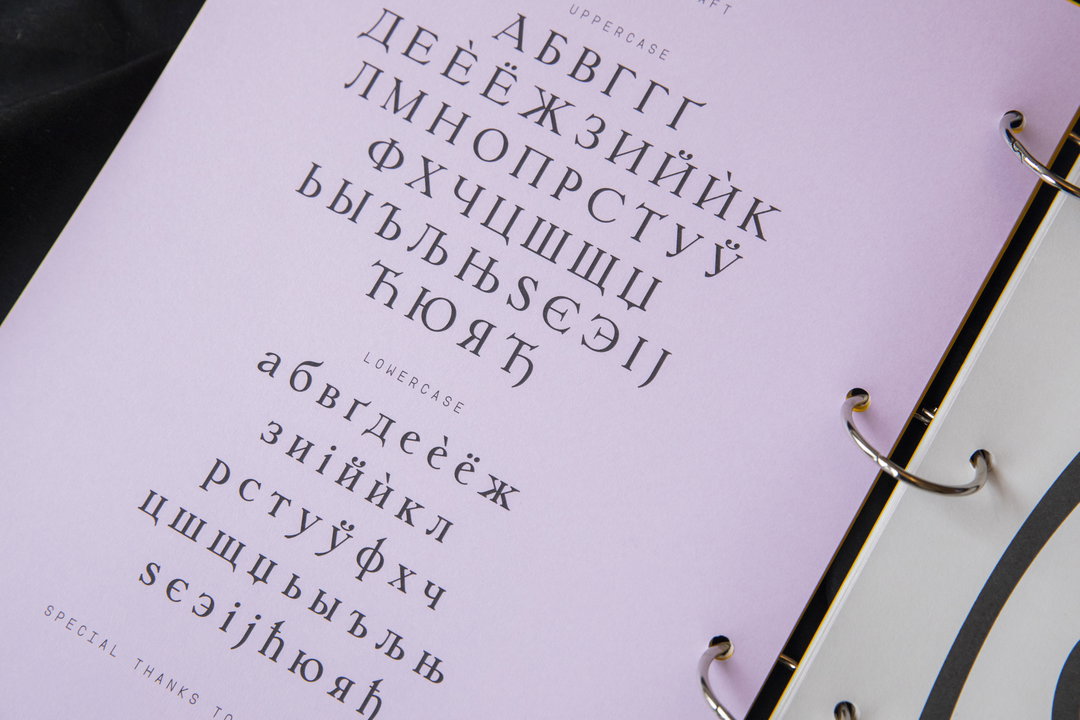 UPPERCASE
АБВГГҐ
ДЕЀЁЖЗИЙЙЍК
ЛМНОПРСТУЎ
ФХЧЦШЩЏ
ЬЫЪЉЊЅЄЭІЈ
ЋЮЯЂ
LOWERCASE
абвґдеѐёж
зиіййѝкл
рстуўфхч
цшщџьыъљњ
ѕєэіјћюяђ
SPECIAL THANKS TO